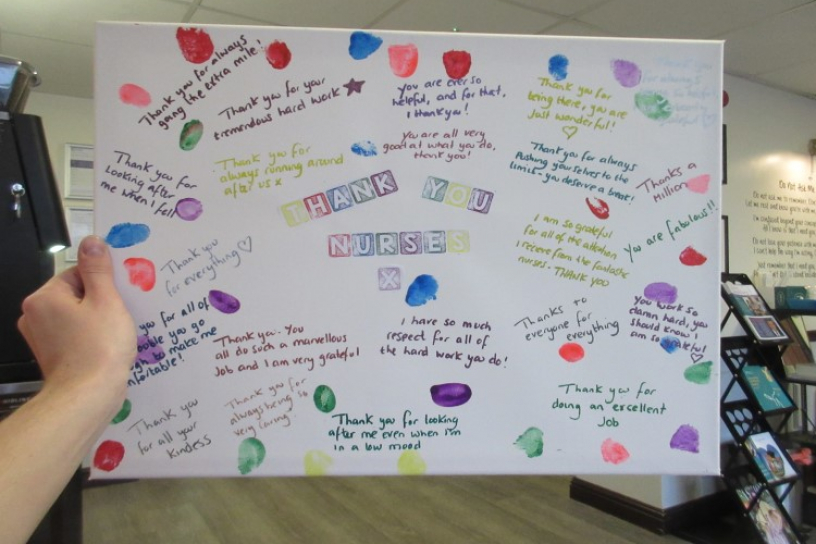 Thank you for always
going the extra mile!
Thank you for your
tremendous hard work
You are ever so
helpful, and for that,
I thank you!
You are all very
good at what you do,
thank you!
Thank you for
being there, you are
Just wonderful!
Thank you for
always
Thank you for
always running around
after us x
Thank you for
Looking after
me when I fell
Thank you for always
Pushing yourselves to the
limit - you deserve a break!
Thanks a
Million
THANK YOU
NURSES
X
I am so grateful
for all of the attention
I receive from the fantastic
nurses. THANK YOU
You are fabulous!!
Thank you
for everything
you for all of
you go
to make me
Thank you. You
all do such a marvellous
Job and I am very grateful
I have so much
respect for all of
the hard work you do!
Thanks to
everyone for
everything
You work so
damn hard, you
should know I
am so grateful
Thank you
for all your
kindess
Thank you for
always being so
very caring.
Thank you for looking
after me even when i'm
in a low mood
Thank you for
doing an excellent
Job
Do Not Ask Me